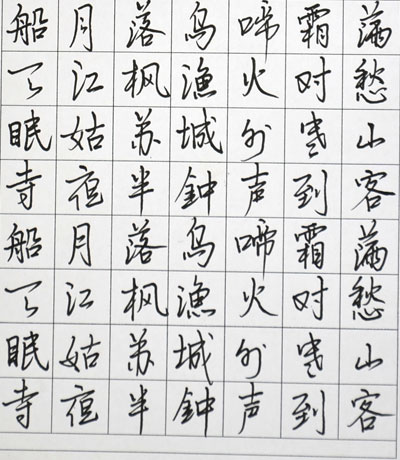 船月落乌啼霜满
天江枫漁火对愁
眠姑苏城外寒山
寺夜半鈡声到客
船月落乌啼霜满
天江枫漁火对愁
眠姑苏城外寒山
寺夜半鈡声到客